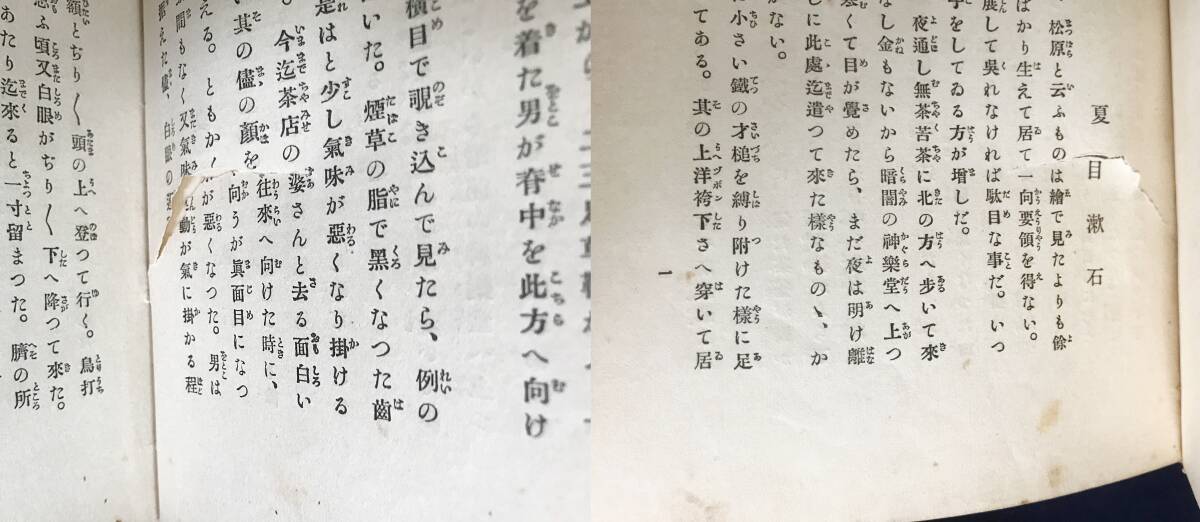 夏目漱石
松原と云ふものは繪で見たよりも餘
ばかり生えて居て一向要領を得ない。
展して吳れなければ駄目な事だ。いつ
をしてゐる方が增しだ。
夜通し無茶苦茶に北の方へ歩いて來
なし金もないから暗闇の神樂堂へ上つ
くて目が覺めたら、まだ夜は明け離
に此處迄遣つて來た樣なものゝ、か
がない。
に小さい鐵の才槌を縛り附けた樣に足
てある。其の上洋袴下さへ穿いて居
一
を着た男が脊中を此方へ向け
橫目で覗き込んで見たら、例の
いた。煙草の脂で黑くなつた齒
是はと少し氣味が惡くなり掛ける
。今迄茶店の婆さんと去る面白い
其の儘の顏を往來へ向けた時に、
える。ともか向うが眞面目になつ
間もなく又氣味が惡くなつた。男は
据えた儘、白眼の動が氣に掛かる程
額とぢり〱頭の上へ登つて行く。鳥打
ふ頭又白眼がぢり〱下へ降つて來た。
あたり迄來ると一寸留まつた。臍の所